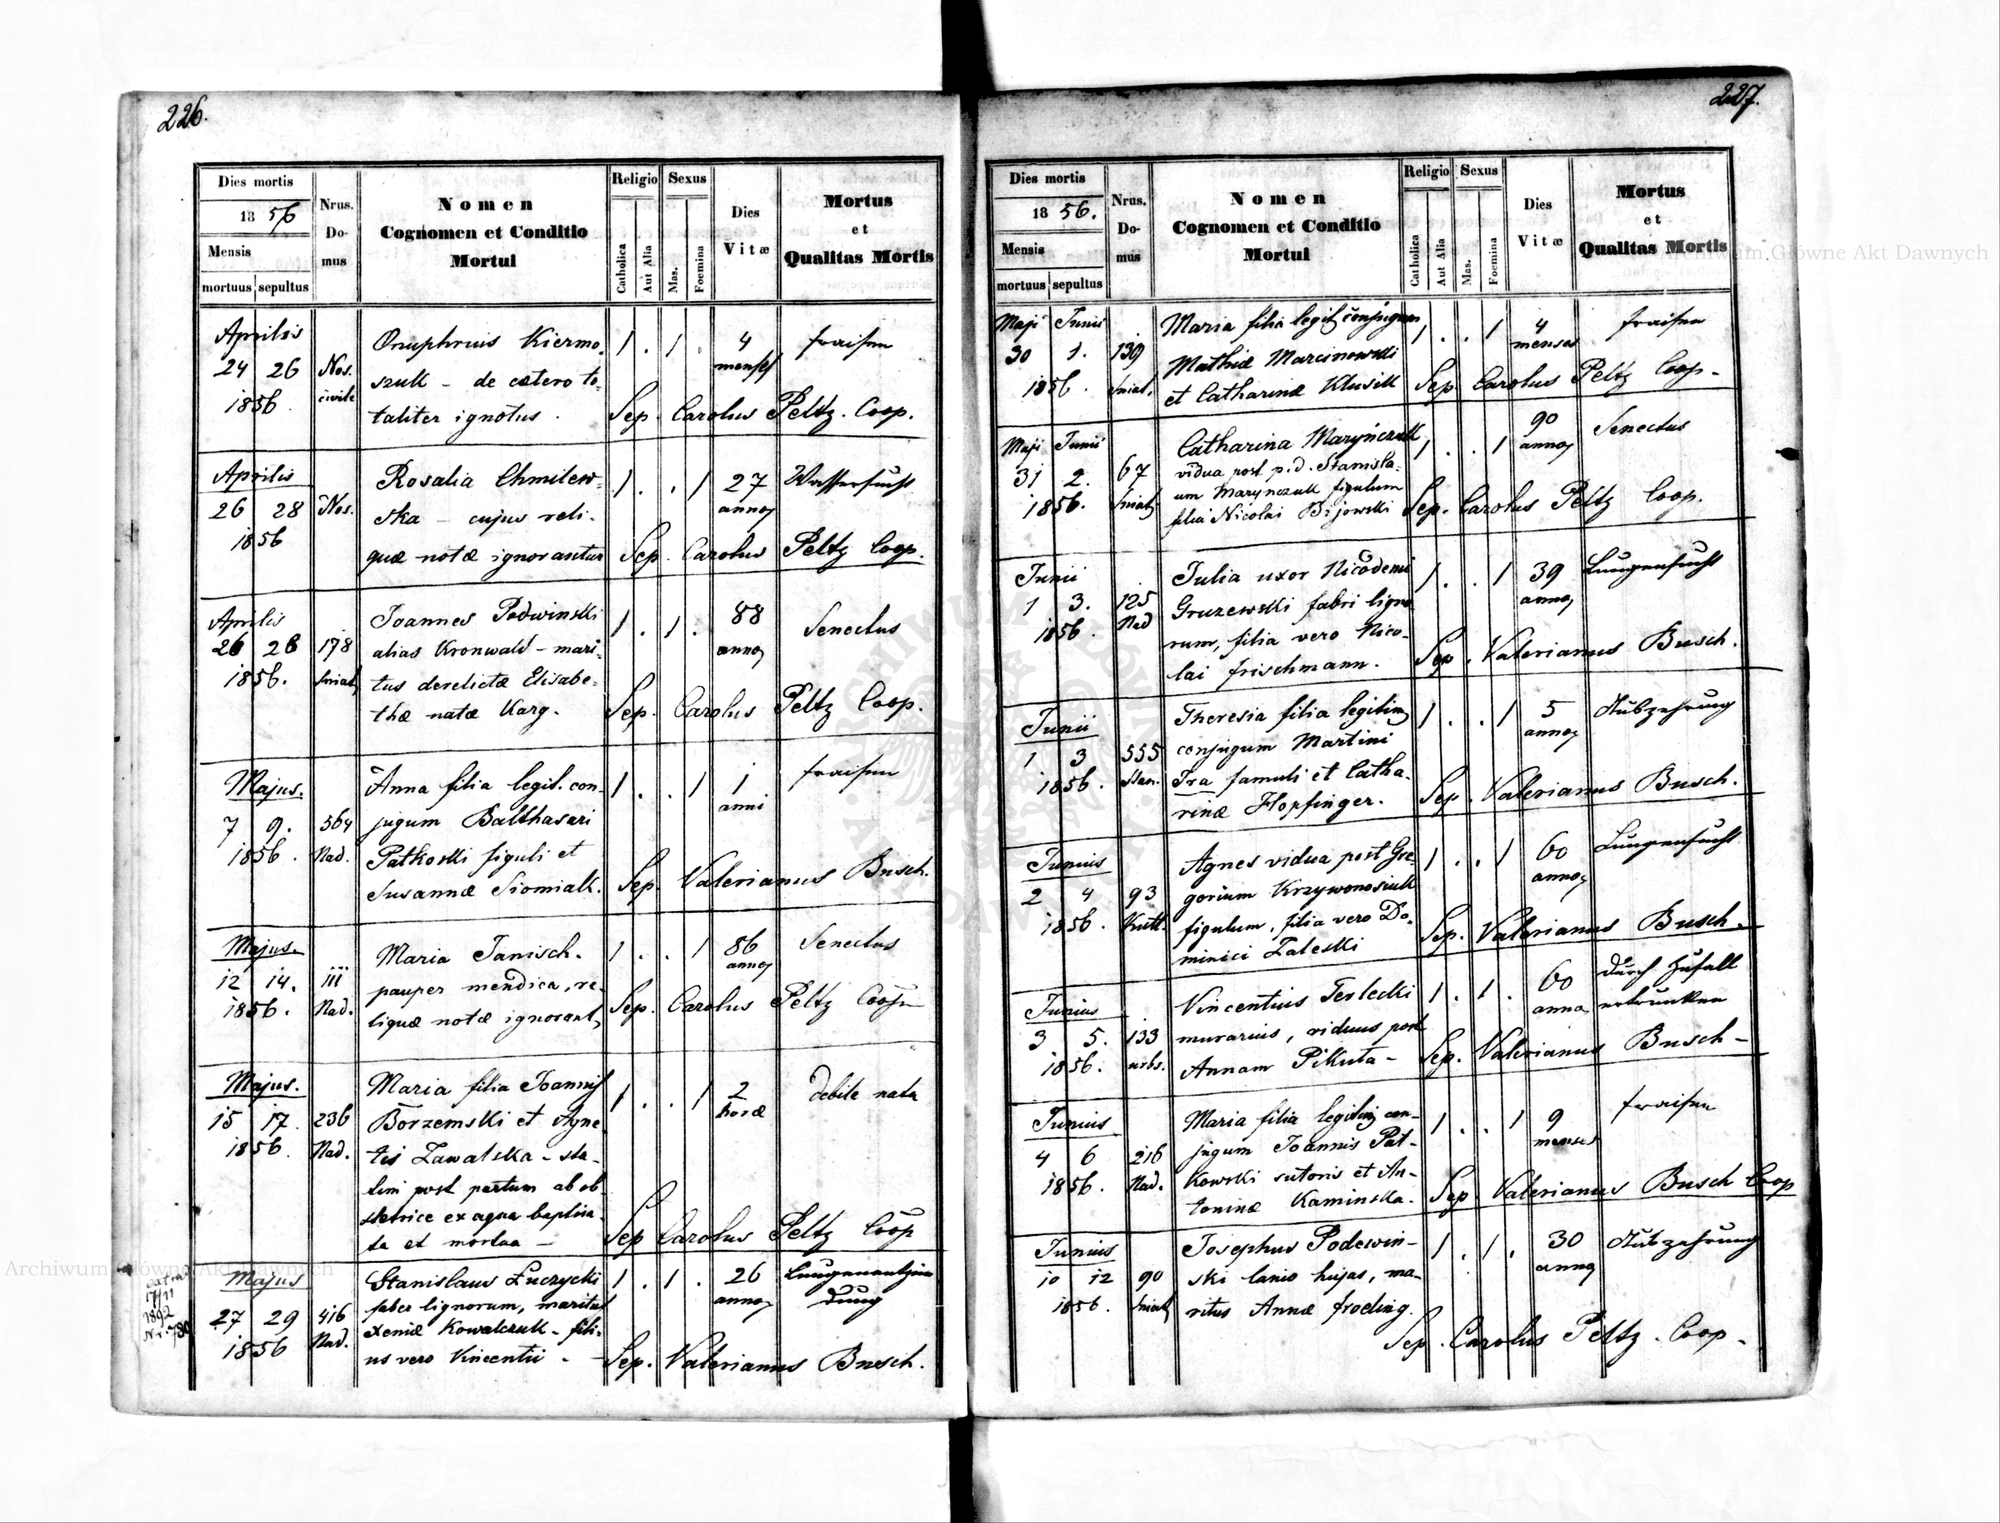 226.
Dies mortis
1856
Mensis
mortuus sepultus
Nrus. Domus
Nomen
Cognomen et Conditio
Mortui
Religio
Catholica
Aut Alia
Sexus
Mas.
Foemina
Dies
Vitæ
Mortus
et
Qualitas Mortis
Aprilis
24 26
1856.
Nos.
civile
Onuphrius Kiermo-
szuk – de cætero to-
taliter ignotus.
1 . 1 .
4
menses
fraisen
Sep. Carolus Peltz. Coop.
Aprilis
26 28
1856
Nos.
Rosalia Chmilew-
ska – cujus reli-
quæ notæ ignorantur
1 . . 1
27
annoȝ
Wassersucht
Sep. Carolus Peltz Coop.
Aprilis
26 28
1856.
178
Sniat
Joannes Podwinski
alias Kronwald – mari-
tus derelictæ Elisabe-
thæ natæ Karg.
1 . 1 .
88
annoȝ
Senectus
Sep. Carolus Peltz Coop.
Majus.
7 9.
1856.
564
Nad.
Anna filia legit. con-
jugum Balthasari
Patkoski figuli et
Susannæ Siomiak.
1 . . 1
1
anni
fraisen
Sep. Valerianus Busch.
Majus.
12 14.
1856.
111
Nad.
Maria Janisch.
pauper mendica, re-
liquæ notæ ignorant,
1 . . 1
86
annoȝ
Senectus
Sep. Carolus Peltz Coop
Majus.
15 17.
1856.
236
Nad.
Maria filia Joannis
Borzemski et Agne-
tis Zawalska – sta-
tim post partum ab ob-
stetrice ex aqua baptisa-
ta et mortua –
1 . . 1
2
horæ
debile nata
Sep Carolus Peltz Coop
extra
17/11
1892
Majus
27 29
1856
416
Nad.
Stanislaus Łuczycki
faber lignorum, maritus
Xeniæ Kowalczuk – fili-
us vero Vincentii –
1 . 1 .
26
annoȝ
Lungenentzün
dung
Sep. Valerianus Busch.
227.
Dies mortis
1856.
Mensis
mortuus sepultus
Nrus. Domus
Nomen
Cognomen et Conditio
Mortui
Religio
Catholica
Aut Alia
Sexus
Mas.
Foemina
Dies
Vitæ
Mortus
et
Qualitas Mortis
Maji Junii
30 1.
1856.
139
Sniat.
Maria filia legit conjugum
Mathiæ Marcinowski
et Catharinæ Klusik
1 . . 1
4
menses
fraisen
Sep Carolus Peltz Coop –
Maji Junii
31 2.
1856.
67
Sniat
Catharina Maryńczuk
vidua post p. d. Stanisla-
um Marynczuk figulum
filia Nicolai Bijowski
1 . . 1
90
annoȝ
Senectus
Sep. Carolus Peltz Coop.
Junii
1 3.
1856.
125
Nad
Julia uxor Nicodemi
Gruzewski fabri ligno
rum, filia vero Nico-
lai Frischmann.
1 . . 1
39
annoȝ
Lungensucht
Sep. Valerianus Busch.
Junii
1 3
1856.
555
Stan.
Theresia filia legitim
conjugum Martini
Fra famuli et Catha-
rinæ Hopfinger.
1 . . 1
5
annoȝ
Abzehrung
Sep. Valerianus Busch.
Junius
2 4
1856.
93
Kutt.
Agnes vidua post Gre
gorium Krzywonosiuk
figulum, filia vero Do-
minici Zaleski
1 . . 1
60
annoȝ
Lungensucht
Sep. Valerianus Busch –
Junius
3 5.
1856.
133
urbs.
Vincentius Terlecki
murarius, viduus post
Annam Pikuta –
1 . 1 .
60
anno
durch Zufall
ertrunken
Sep. Valerianus Busch –
Junius
4 6
1856.
216
Nad.
Maria filia legitim con-
jugum Joannis Pat-
kowski sutoris et An-
toninæ Kaminska.
1 . . 1
9
menses
fraisen
Sep Valerianus Busch Coop
Junius
10 12
1856.
90
Sniat
Josephus Podewin-
ski lanio hujas, ma-
ritus Annæ Froding.
1 . 1 .
30
annoȝ
Abzehrung
Sep. Carolus Peltz. Coop –
Archiwum Główne Akt Dawnych
Archiwum Główne Akt Dawnych